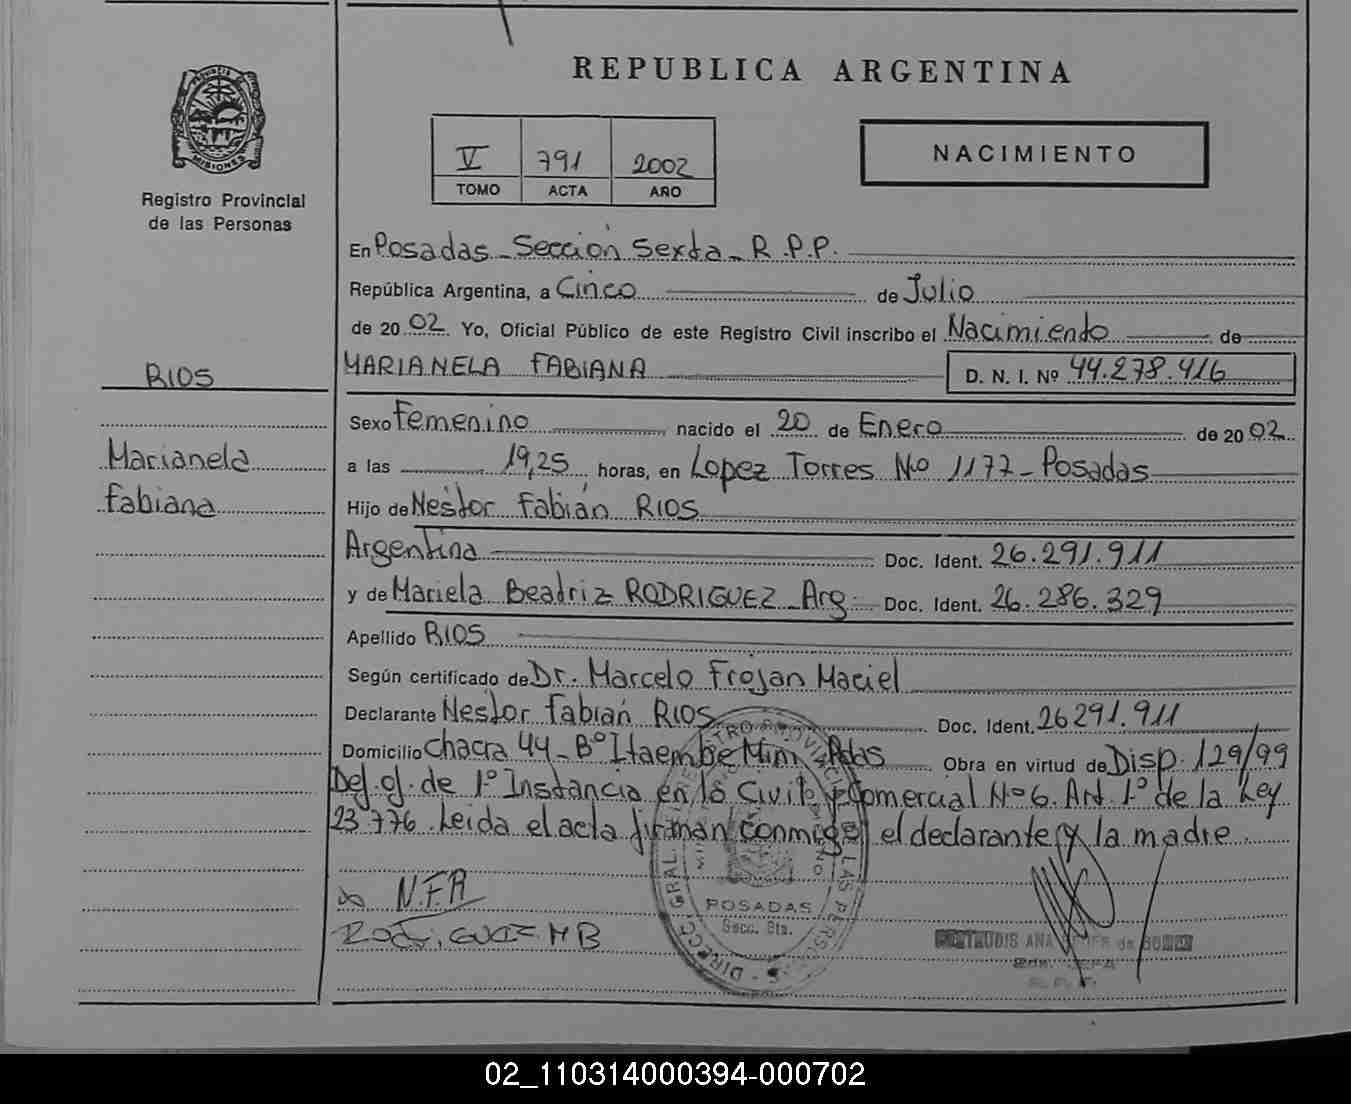 REPUBLICA ARGENTINA
PROVINCIA DE MISIONES
Registro Provincial
de las Personas
V 791 2002
TOMO ACTA AÑO
NACIMIENTO
En Posadas - Sección Sexta - R.P.P.
República Argentina, a Cinco de Julio
de 2002. Yo, Oficial Público de este Registro Civil inscribo el Nacimiento de
RIOS
MARIANELA FABIANA D. N. I. Nº 44.278.416
Sexo Femenino nacido el 20 de Enero de 2002
Marianela
Fabiana
a las 19,25 horas, en Lopez Torres No 1177 - Posadas
Hijo de Nestor Fabián RIOS
Argentina Doc. Ident. 26.291.911
y de Mariela Beatriz RODRIGUEZ - Arg. Doc. Ident. 26.286.329
Apellido RIOS
Según certificado de Dr. Marcelo Frojan Maciel
Declarante Nestor Fabián RIOS Doc. Ident. 26291.911
Domicilio Chacra 44 - Bº Itaembe Mini Pdas Obra en virtud de Disp. 129/99
Def. of. de 1º Instancia en lo Civil y Comercial Nº 6. Art. 1º de la Ley
23.776. Leida el acta firman conmigo el declarante y la madre.
N.F.R
RODRIGUEZ M B
POSADAS
Secc. 6ta.
02_110314000394-000702